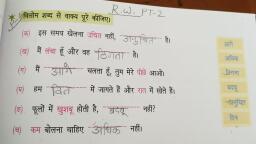 R.W. PT-2
विलोम शब्द से वाक्य पूरे कीजिए।
(क) इस समय खेलना उचित नहीं, अनुचित है।
(ख) मैं लंबा हूँ और वह ठिगना है।
(ग) मैं आगे चलता हूँ, तुम मेरे पीछे आओ।
(घ) हम दिन में जागते हैं और रात में सोते हैं।
(ङ) फूलों में खुशबू होती है, बदबू नहीं?
(च) कम बोलना चाहिए अधिक नहीं।
आगे
अधिक
ठिगना
बदबू
अनुचित
दिन